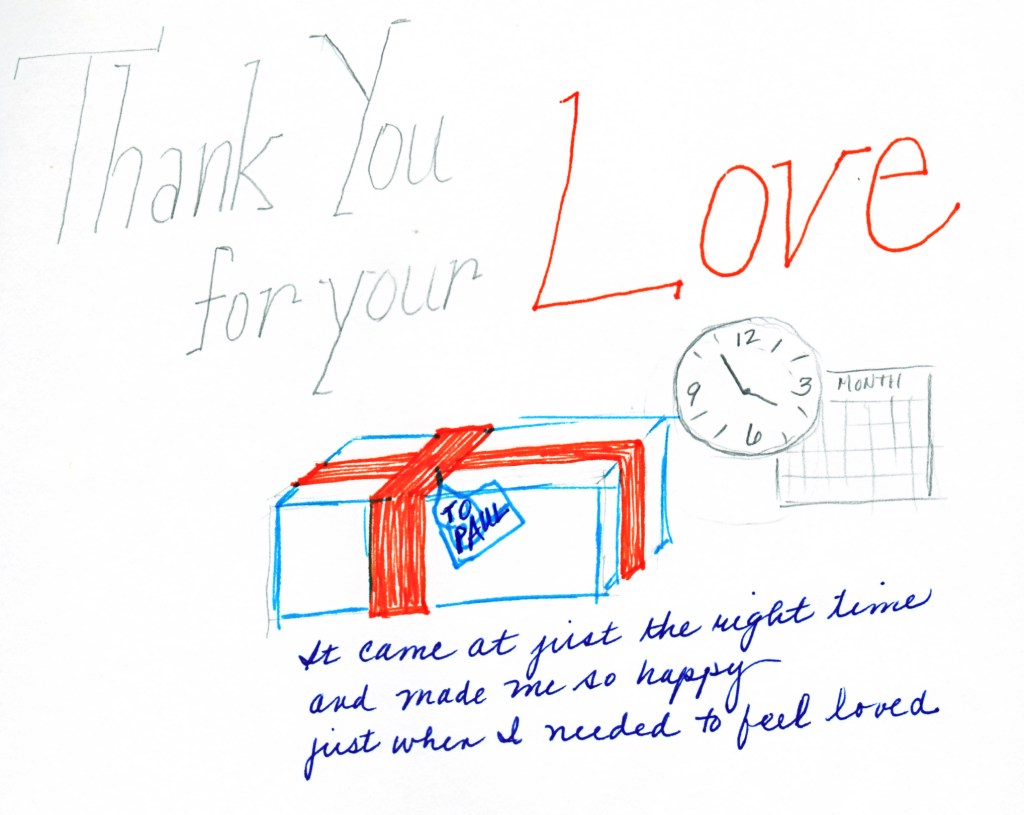 Thank You
for your
Love
12
3
6
9
MONTH
TO
PAUL
It came at just the right time
and made me so happy
just when I needed to feel loved.